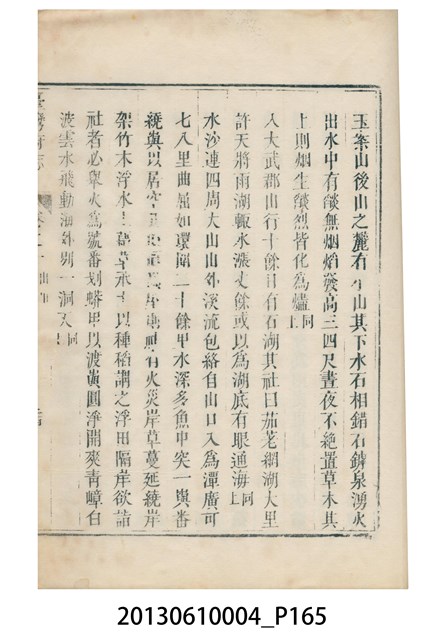 玉案山後山之麓有小山其下水石相錯石罅泉湧火
出水中有燄無烟焰發高三四尺晝夜不絶置草木其
上則烟生燄烈皆化為燼同上
入大武郡山行十餘日有石湖其社曰茄荖網湖大里
許天將雨湖輒水漲丈餘或以為湖底有眼通海同上
水沙連四周大山山外溪流包絡自山口入為潭廣可
七八里曲屈如環圍二十餘里水深多魚中突一嶼番
繞嶼以居空其頂頂為屋則有火災岸草蔓延繞岸
架竹木浮水上藉草承土以種稻謂之浮田隔岸欲詣
社者必舉火為號番划蟒甲以渡嶼圓淨開爽青嶂白
波雲水飛動海外別一洞天同上
臺灣府志
20130610004_P165